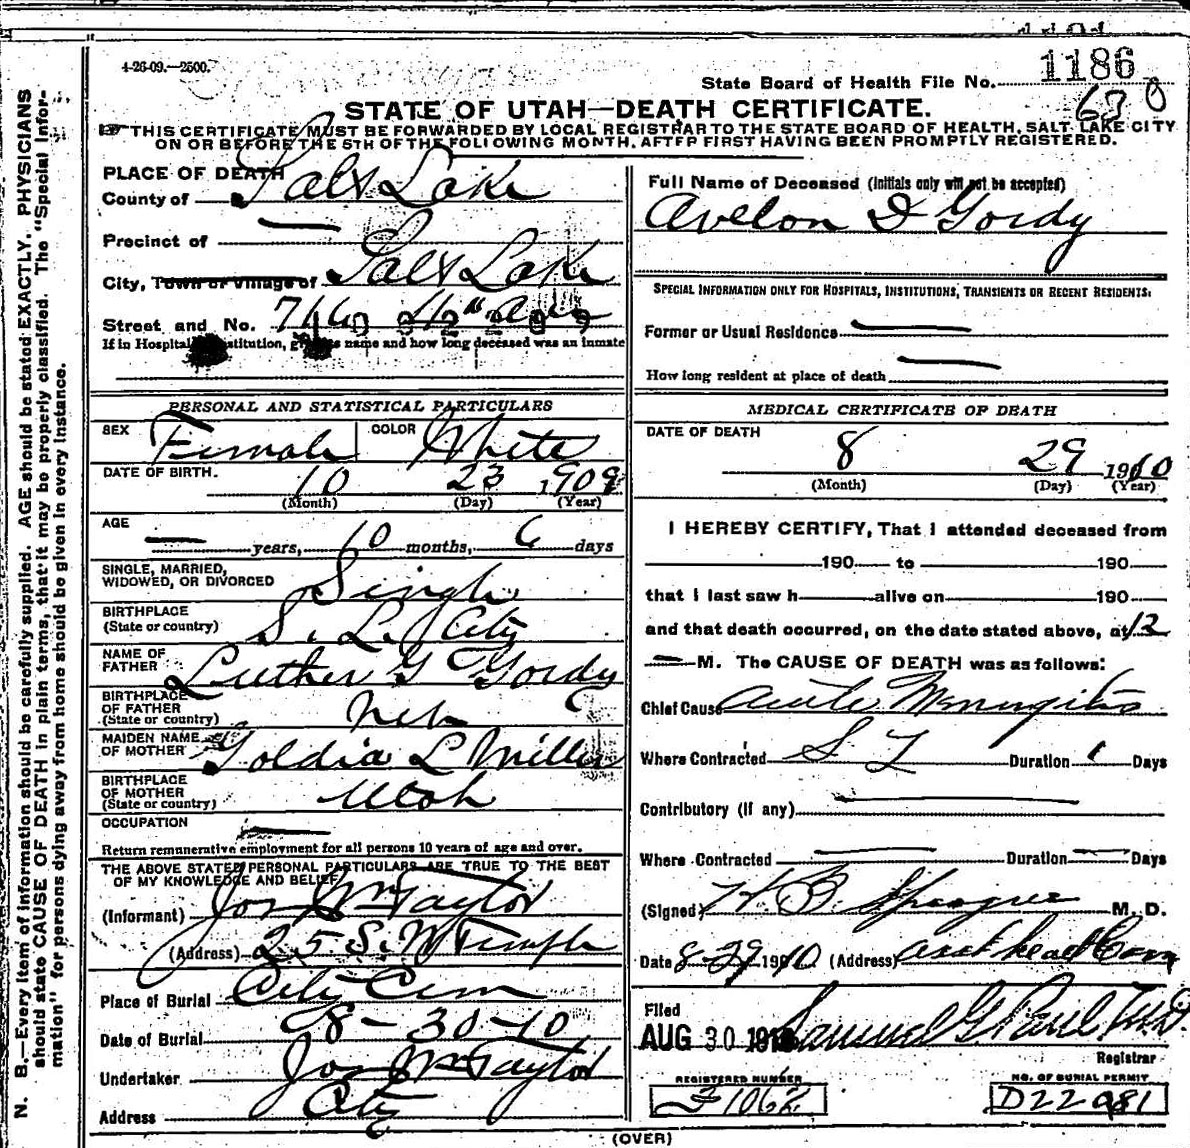 4-26-09.—2500.
State Board of Health File No. 1186
STATE OF UTAH—DEATH CERTIFICATE.
THIS CERTIFICATE MUST BE FORWARDED BY LOCAL REGISTRAR TO THE STATE BOARD OF HEALTH, SALT LAKE CITY
ON OR BEFORE THE 5TH OF THE FOLLOWING MONTH, AFTER FIRST HAVING BEEN PROMPTLY REGISTERED.
N. B.—Every item of information should be carefully supplied. AGE should be stated EXACTLY. PHYSICIANS
should state CAUSE OF DEATH in plain terms, that it may be properly classified. The "Special Infor-
mation" for persons dying away from home should be given in every instance.
PLACE OF DEATH
County of Salt Lake
Precinct of —
City, Town or Village of Salt Lake
Street and No. 716
If in Hospital institution, give its name and how long deceased was an inmate
PERSONAL AND STATISTICAL PARTICULARS
SEX Female COLOR White
DATE OF BIRTH. 10 23 1909
(Month) (Day) (Year)
AGE
— years, 10 months, 6 days
SINGLE, MARRIED,
WIDOWED, OR DIVORCED Single
BIRTHPLACE
(State or country) S. L. City
NAME OF
FATHER Luther G Gordy
BIRTHPLACE
OF FATHER
(State or country) Neb
MAIDEN NAME
OF MOTHER Goldia L Miller
BIRTHPLACE
OF MOTHER
(State or country) Utah
OCCUPATION —
Return remunerative employment for all persons 10 years of age and over.
THE ABOVE STATED PERSONAL PARTICULARS ARE TRUE TO THE BEST
OF MY KNOWLEDGE AND BELIEF
(Informant) Jos Wm Taylor
(Address) 25 S. W Temple
Place of Burial City Cem
Date of Burial 8-30-10
Undertaker Jos Wm Taylor
Address City
Full Name of Deceased (Initials only will not be accepted)
Avelon D Gordy
SPECIAL INFORMATION ONLY FOR HOSPITALS, INSTITUTIONS, TRANSIENTS OR RECENT RESIDENTS:
Former or Usual Residence —
How long resident at place of death —
MEDICAL CERTIFICATE OF DEATH
DATE OF DEATH
8 29 1910
(Month) (Day) (Year)
I HEREBY CERTIFY, That I attended deceased from
190 to 190
that I last saw h alive on 190
and that death occurred, on the date stated above, at 12
— M. The CAUSE OF DEATH was as follows:
Chief Cause Acute Meningitis
Where Contracted S L Duration 1 Days
Contributory (if any) —
Where Contracted — Duration — Days
(Signed) H. B. Sprague M. D.
Date 8-29 1910 (Address) Asst health Com
Filed
AUG 30 1910 Samuel G Paul M.D.
Registrar
REGISTERED NUMBER
1062
NO. OF BURIAL PERMIT
D22981
(OVER)